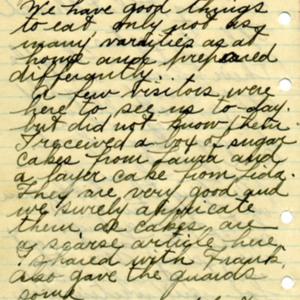 We have good things
to eat, only not as
many varaties as at
home and prepared
differently...
A few visitors were
here to see us to-day.
but did not know them.
I received a box of sugar
cakes from Laura and
a layer cake from Lida.
They are very good and
we surely appricate
them, as cakes are
a scarse article here,
i shared with Frank,
also gave the guards
some